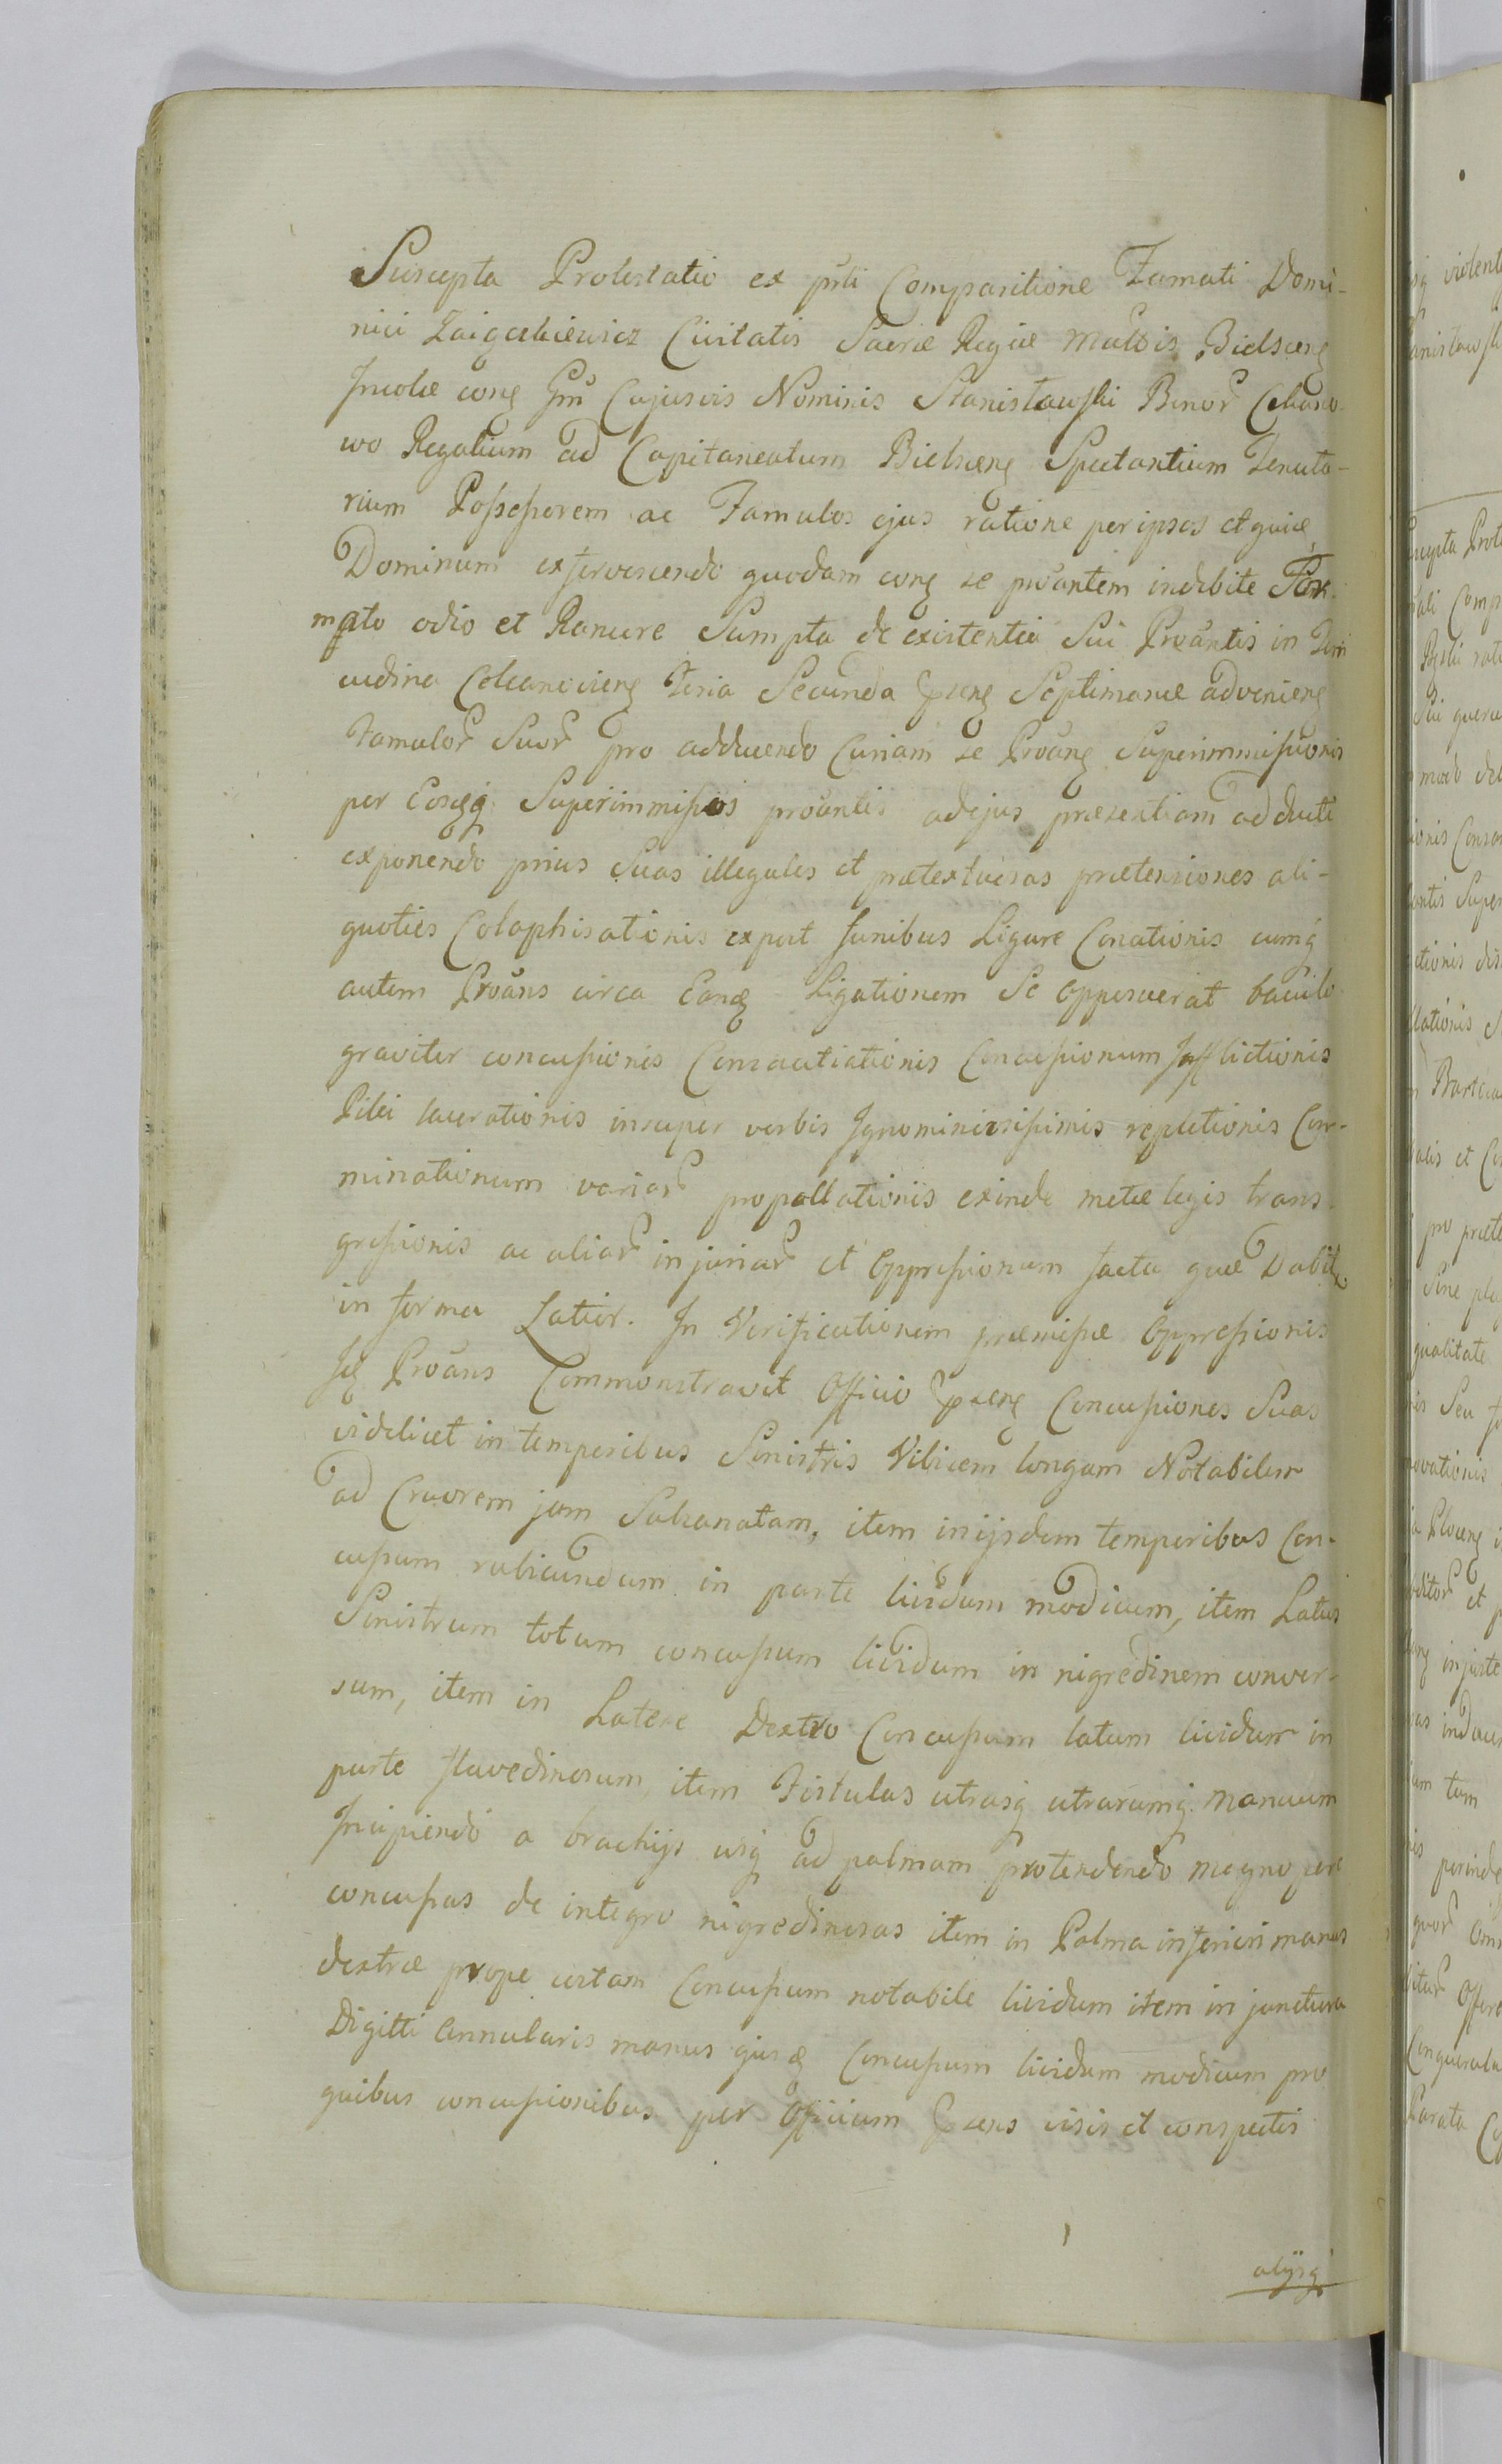 Suscepta Protestatio ex prsti Comparitione Famati Domi-
nici Zaigalkiewicz Civitatis Sacræ Regiæ Mattis Bielscens
Incolæ cons Gm Cujusvis Nominis Stanisławski Bonor
wo Regalium ad Capitaneatum Bielscens Spectantium Tenuta-
rium Possessorem ac Famulos ejus ratione per ipsos et quia
Dominum exfervescendo quodam cons se proantem indebite For-
mato odio et Rancure Sumpta de existentia Sui Proantis in
cudina feria Secunda præsens Septimanæ adveniens
Famulor Suor pro adducendo Curiam se Proans Superimmissionis
per Eosq Superimmissos proantis ad ejus præsentiam adducti
exponendo prius Suas illegales et prætextuosas prætensiones ali-
quoties Colaphisationis expost funibus Ligare Conationis cumq
autem Proans circa Eandem Ligationem Se opposuerat baculo
graviter concussionis Consauciationis Concussionum Inflictionis
Pilei lacerationis insuper verbis Ignominiosissimis repletionis Com-
minationum variar propallationis exinde metæ legis trans-
gressionis ac aliar injuriar et Oppressionum facta quæ Dabit
in forma Latior. In Verificationem præmissæ Oppressionis
Id Proans Commonstravit Officio præsens Concussiones Suas
videlicet in temporibus Sinistris Vibicem longam Notabilem
ad Cruorem jam Subsanatam, item in ijsdem temporibus Con-
cussum rubicundum in parte lividum modicum, item Latus
Sinistrum totum concussum lividum in nigredinem conver-
sum, item in Latere Dextro Concussum latum lividum in
parte flavedinosum, item Fistulas utrasq utrarumq manuum
Incipiendo a brachijs usq ad palmam protendendo magno pere
concussas de integro nigredinosas item in Palma inferiori manus
dextræ prope costam Concussum notabile lividum item in junctura
Digitti Annularis manus ejusd Concussum lividum modicum pro
quibus concussionibus per Officium præsens visis et conspectis
alijsq